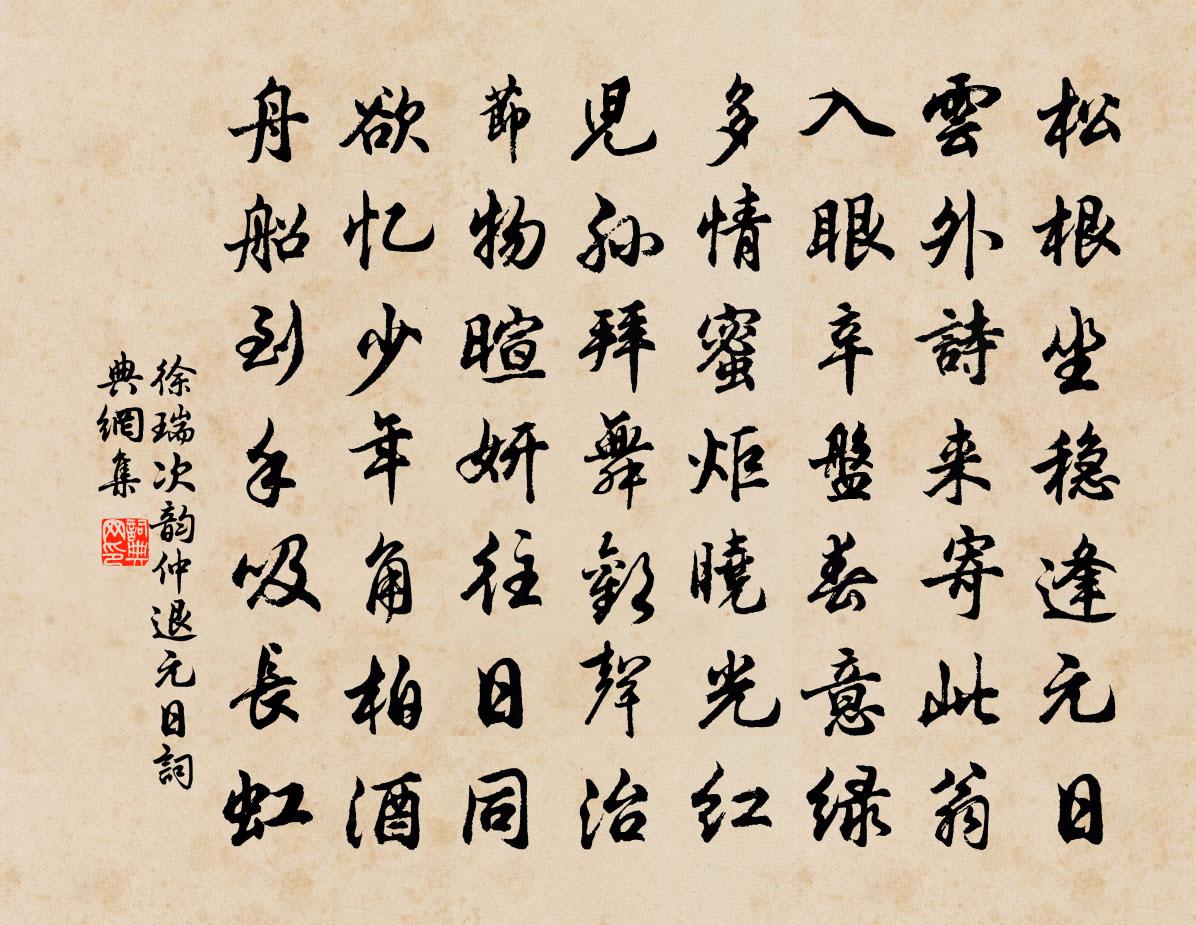 松根坐稳逢元日
雲外詩来寄此翁
入眼辛盤春意绿
多情蜜炬曉光红
児孙拜舞歡聲治
節物暄妍往日同
欲忆少年角柏酒
舟船到手吸長虹
徐瑞次韵仲退元日詞
典網集
詞典网印